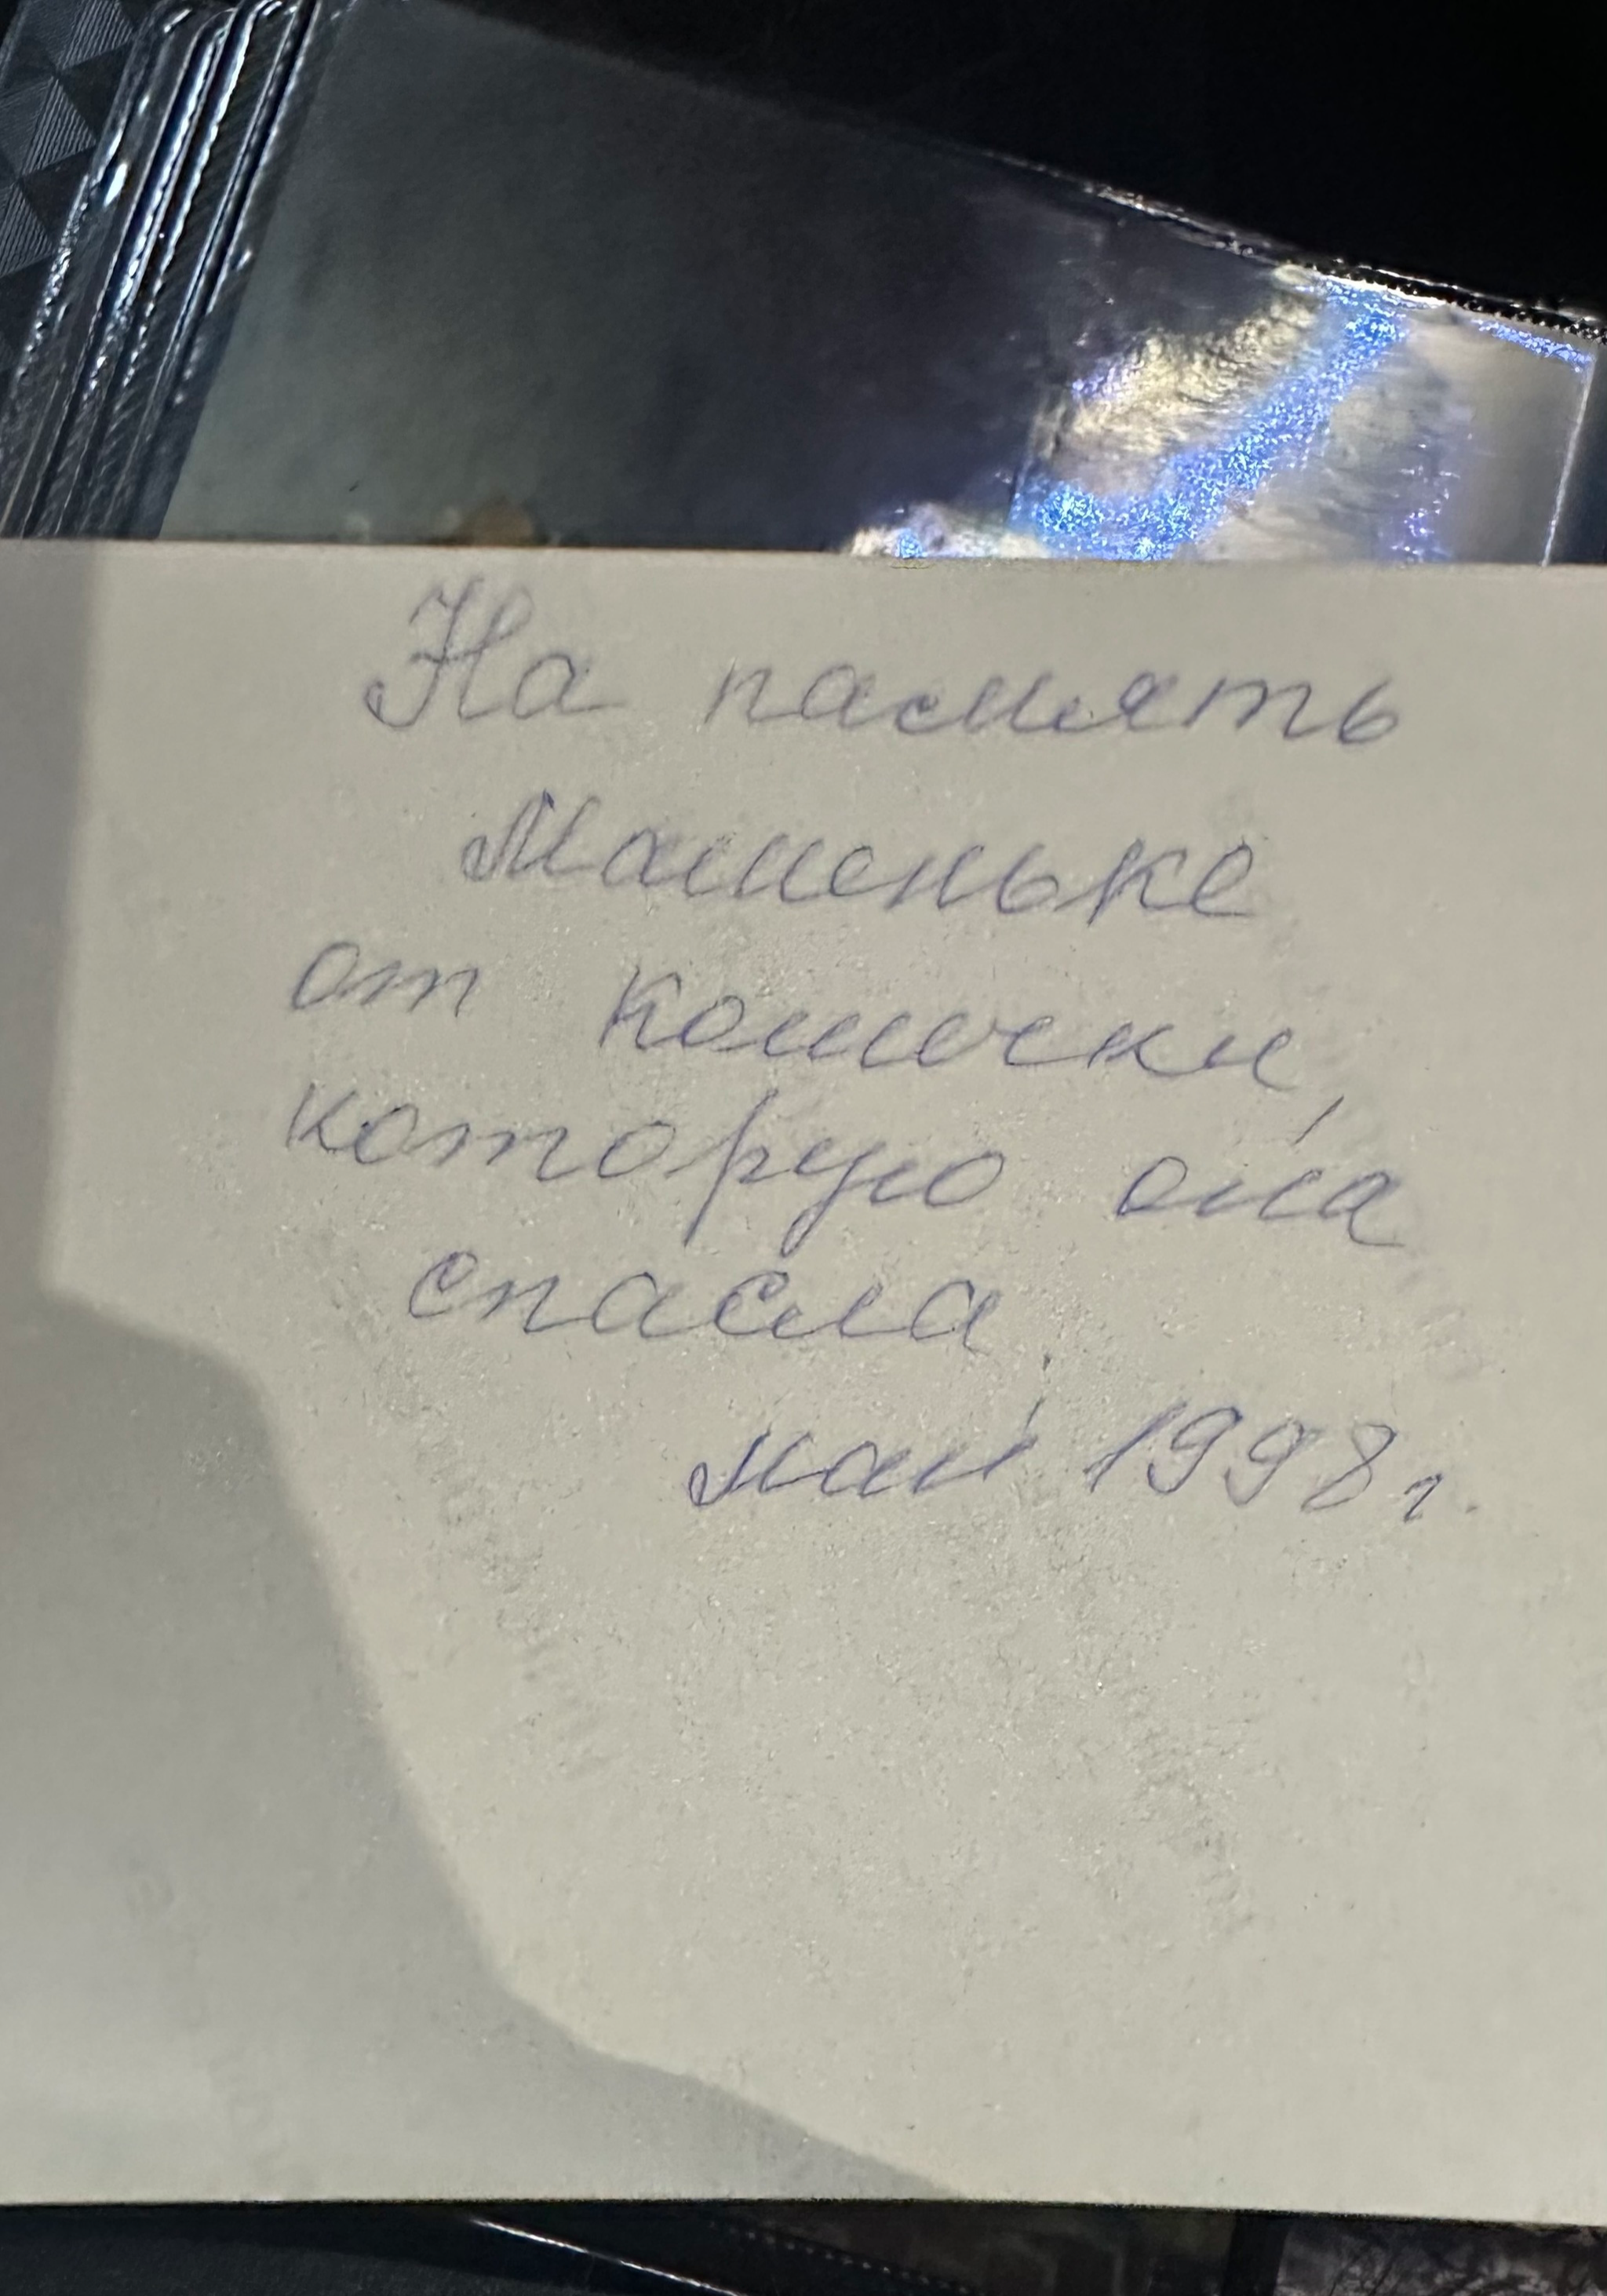 На память
Машеньке
от кошечки,
которую она
спасла.
май 1998г.